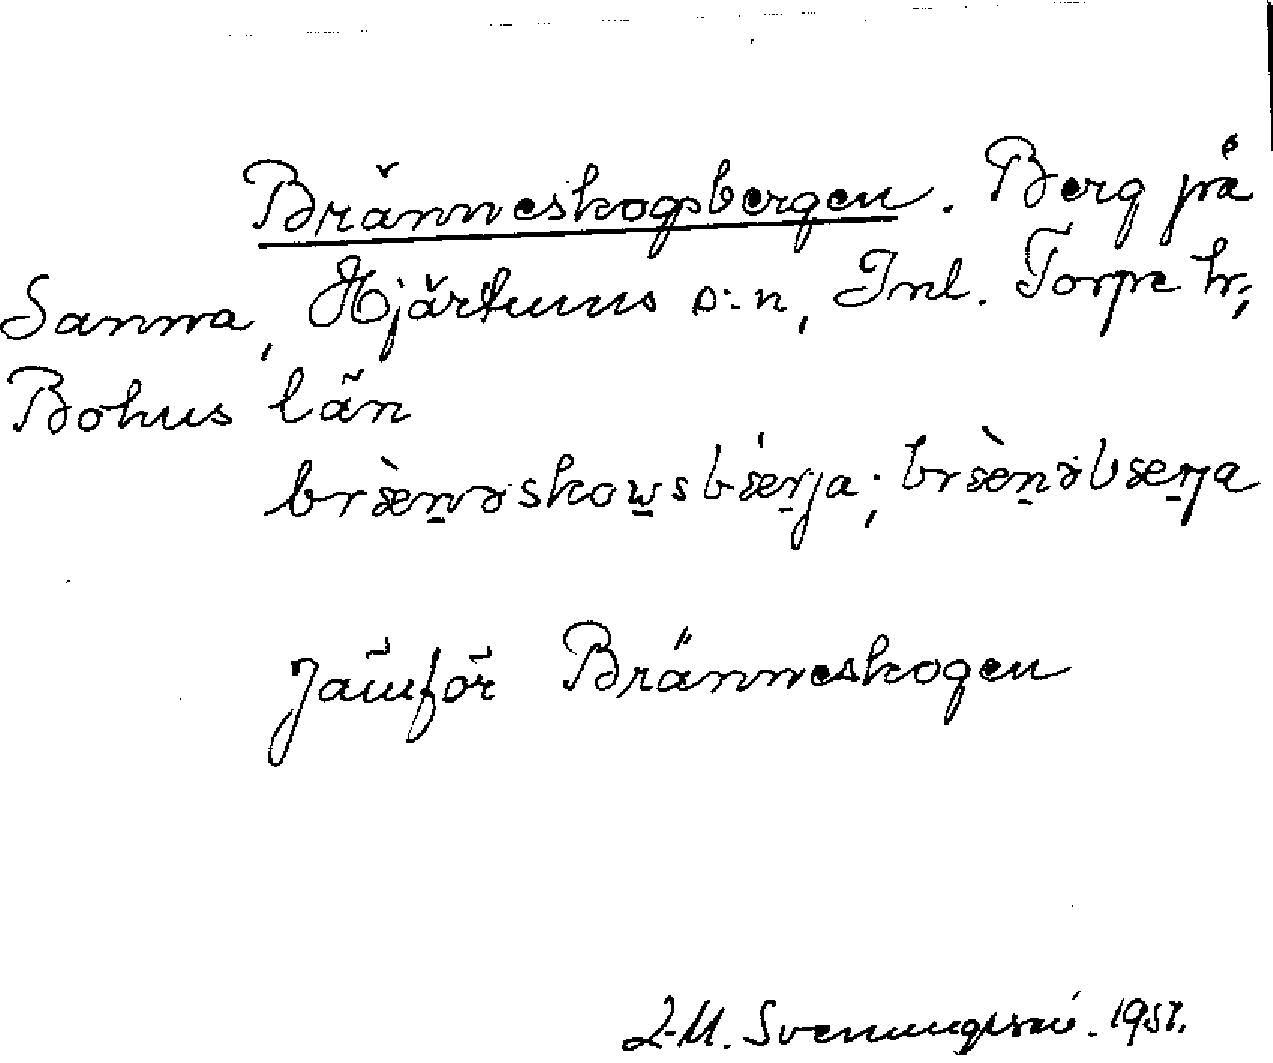 Bränneskogsbergen. Berg på
Sanna, Hjärtums s:n, Inl. Torpe hr,
Bohus län
bræ̀n̠əskow̠sbær̠ja; bræ̀n̠əbær̠ja
Jämför Bränneskogen
Svenungsson. 1957.